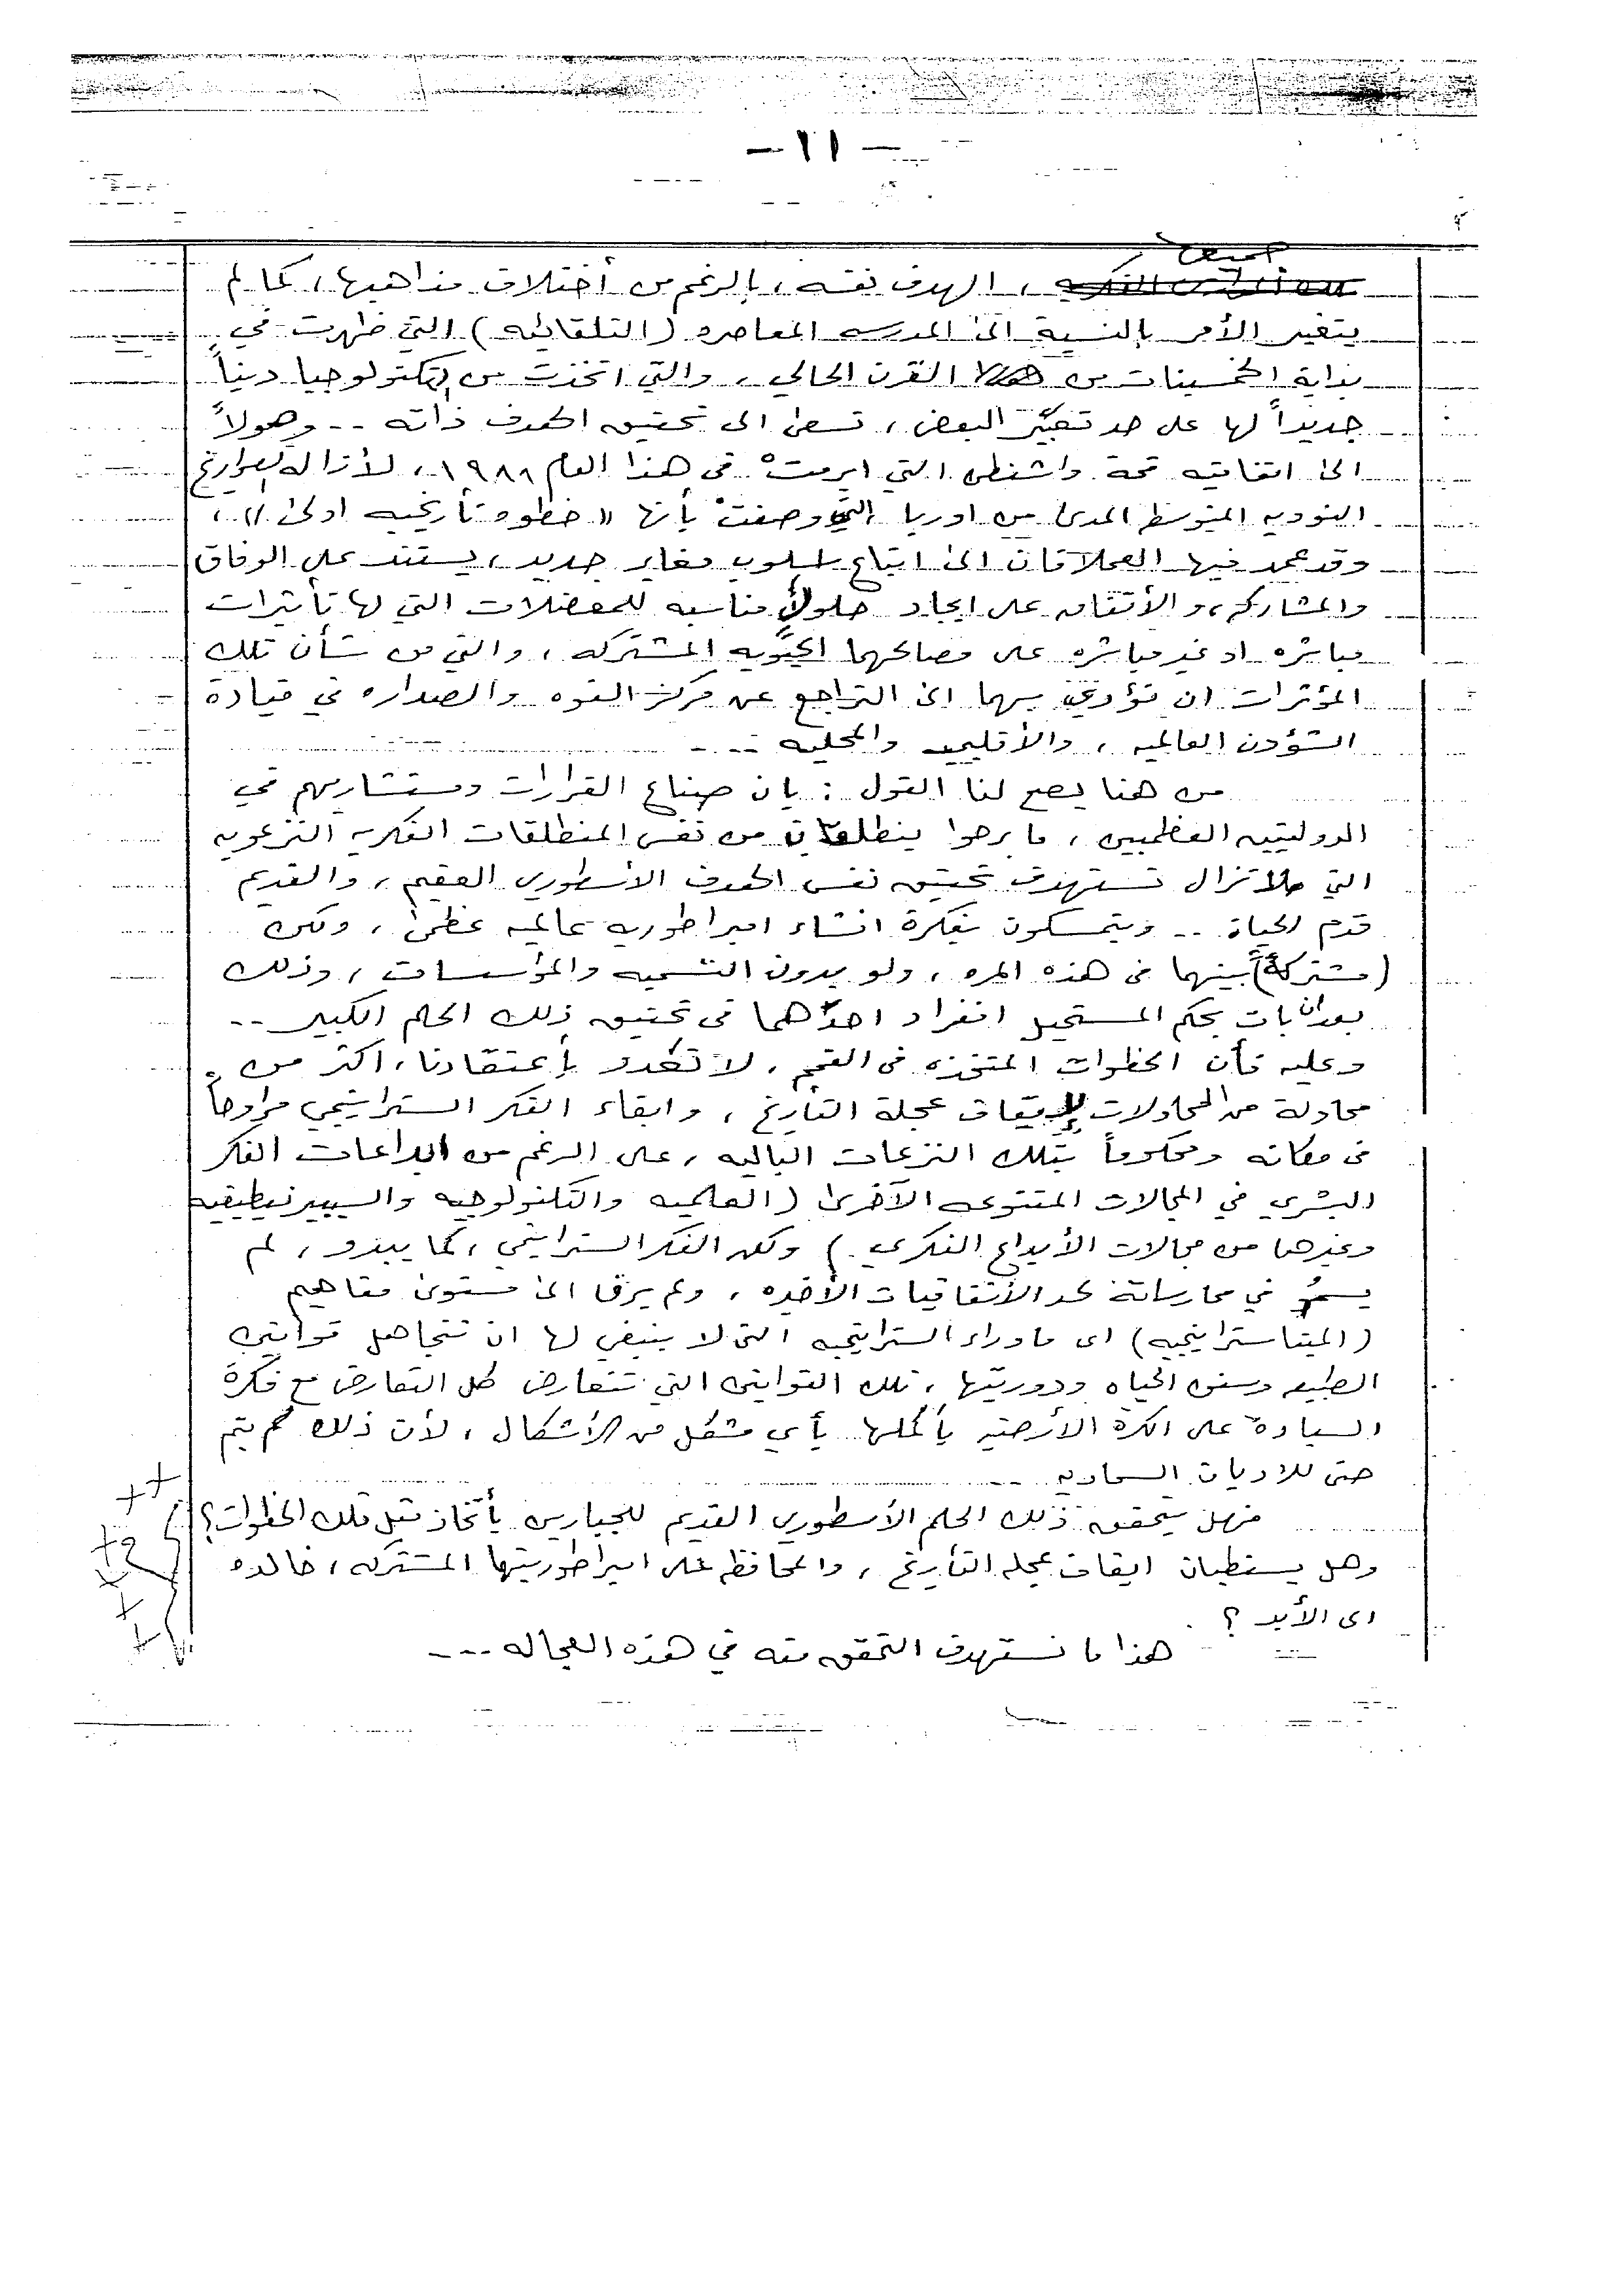 - ١١ -
جميعها
، الهدف نفسه ، بالرغم من أختلاف مذاهبها ، كما لم
يتغير الأمر بالنسبة الى المدرسه المعاصره (التلقائيه) التي ظهرت في
بداية الخمسينات من القرن الحالي ، والتي اتخذت من التكنولوجيا ديناً
جديداً لها على حد تعبير البعض ، تسعى الى تحقيق الهدف ذاته .. وصولاً
الى اتفاقيه قمة واشنطن التي ابرمتْ في هذا العام ١٩٨٨ ، لأزاله الصواريخ
النوويه المتوسط المدى من اوربا التي وصفتْ بأنها « خطوه تأريخيه اولى » ،
وقد عمد فيها العملاقان الى اتباع اسلوب مغاير جديد ، يستند على الوفاق
والمشاركه ، والأتفاق على ايجاد حلولاً مناسبه للمعضلات التي لها تأثيرات
مباشره او غير مباشره على مصالحهما الحيّويه المشتركه ، والتي من شأن تلك
المؤثرات ان تؤدي بهما الى التراجع عن مركز القوه والصداره في قيادة
الشؤون العالميه ، والأقليميه والمحليه ...
من هنا يصح لنا القول : بان صناع القرارات ومستشاريهم في
الدولتين العظميين ، ما برحوا ينطلقون من نفس المنطلقات الفكريه النزعويه
التي لا تزال تستهدف تحقيق نفس الهدف الأسطوري العقيم ، والقديم
قدم الحياة .. ويتمسكون بفكرة انشاء امبراطوريه عالميه عظمى ، ولكن
(مشتركةً) بينهما في هذه المره ، ولو بدون التسميه والمؤسسات ، وذلك
بعد ان بات بحكم المستحيل انفراد احدهما في تحقيق ذلك الحلم الكبير ..
وعليه فأن الخطوات المتخذه في القمم ، لا تغدو بأعتقادنا ، اكثر من
محاولة من المحاولات لإيقاف عجلة التأريخ ، وابقاء الفكر الستراتيجي مراوحاً
في مكانه ومحكوماً بتلك النزعات الباليه ، على الرغم من ابداعات الفكر
البشري في المجالات المتنوعه الآخرى (العلميه والتكنولوجيه والسيبيرنيطيقيه
وغيرهما من مجالات الأبداع الفكري .) ولكن الفكر الستراتيجي ، كما يبدو ، لم
يسمُ في ممارساته لحد الأتفاقيات الأخيره ، ولم يرقا الى مستوى مفاهيم
(الميتاستراتيجيه) اى ما وراء الستراتيجيه التى لا ينبغي لها ان تتجاهل قوانين
الطبيعه وسنن الحياه ودوريتها ، تلك القوانين التي تتعارض كل التعارض مع فكرة
السيادة على الكرة الأرضيه بأكملها بأي شكل من الأشكال ، لأن ذلك لم يتم
حتى للاديان السماديه ..
فهل يتحقق ذلك الحلم الأسطوري القديم للجبارين بأتخاذ مثل تلك الخطوات ؟
وهل يستطيعان ايقاف عجله التأريخ ، والمحافظه على امبراطوريتهما المشتركه ، خالده
الى الأبد ؟
هذا ما نستهدف التحقق منه في هذه العجاله ...